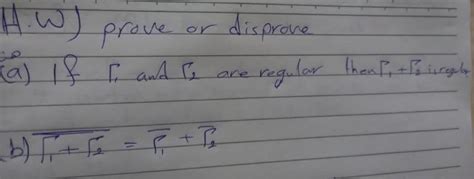 H.W) prove or disprove
(a) If Γ₁ and Γ₂ are regular then Γ₁ + Γ₂ is regular
b) \overline{Γ₁ + Γ₂} = \overline{Γ₁} + \overline{Γ₂}